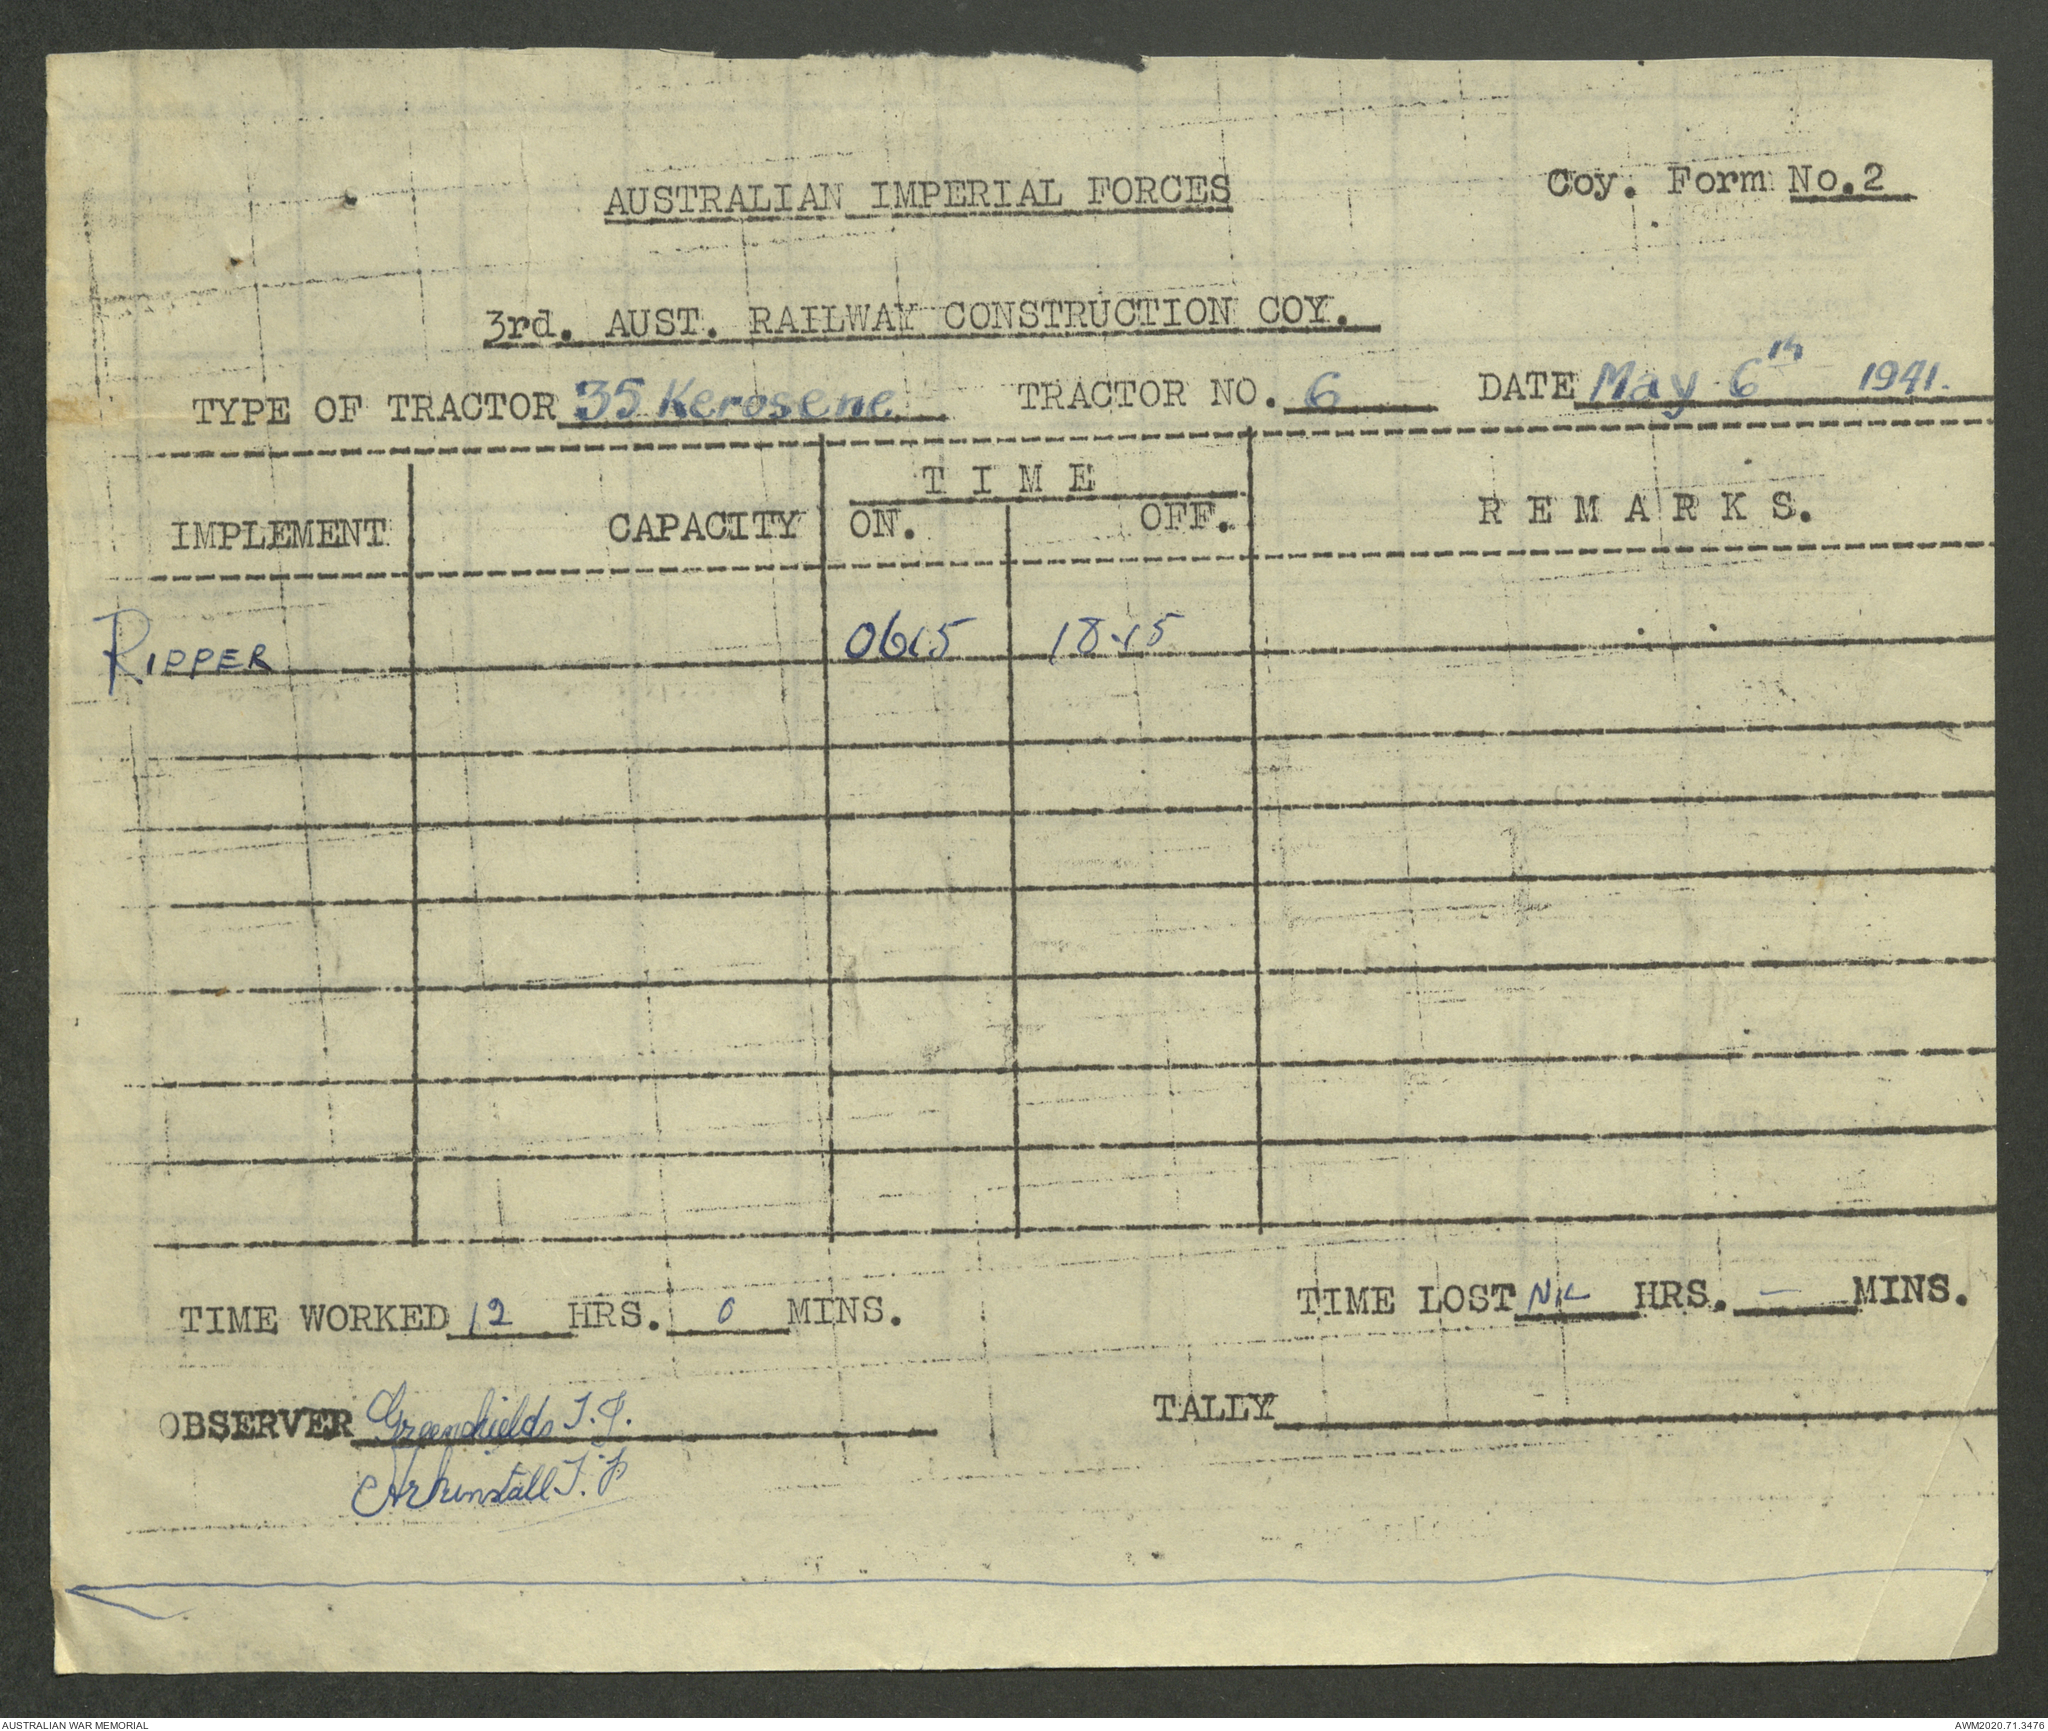 AUSTRALIAN IMPERIAL FORCES
Coy. Form No.2
3rd. AUST. RAILWAY CONSTRUCTION COY.
TYPE OF TRACTOR 35 Kerosene TRACTOR NO. 6 DATE May 6th 1941.
T I M E
IMPLEMENT CAPACITY ON. OFF. R E M A R K S.
RIPPER 0615 18.15
TIME WORKED 12 HRS. 0 MINS. TIME LOST NIL HRS. — MINS.
OBSERVER Greenshields T.J. TALLY
Arkinstall T.P
AUSTRALIAN WAR MEMORIAL
AWM2020.71.3476